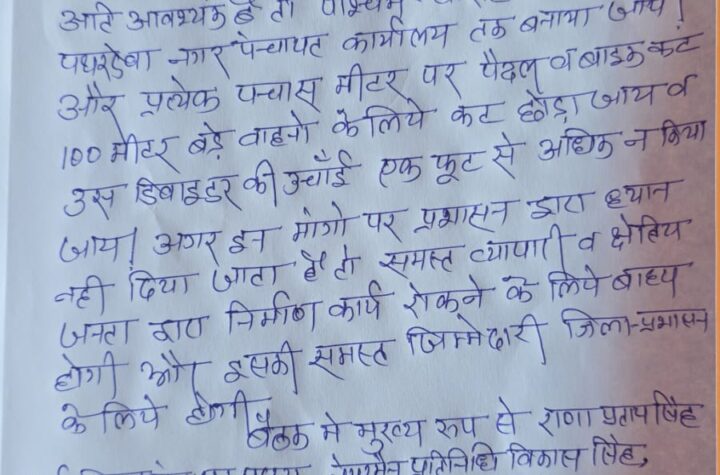 अति आवश्यक है तो पश्चिम
पथरदेवा नगर पंचायत कार्यालय तक बनाया जाय।
और प्रत्येक पचास मीटर पर पैदल व बाइक कट
100 मीटर बड़े वाहनो के लिये कट छोड़ा जाय व
उस डिवाइडर की उचाँई एक फूट से अधिक न किया
जाय। अगर इन मांगो पर प्रशासन द्वारा ध्यान
नही दिया जाता है तो समस्त व्यापारी व क्षेत्रिय
जनता द्वारा निर्माण कार्य रोकने के लिये बाध्य
होगी और इसकी समस्त जिम्मेदारी जिला-प्रशासन
के लिये होगी।
बैठक मे मुख्य रुप से राणा प्रताप सिंह
प्रतिनिधि विकास सिंह,